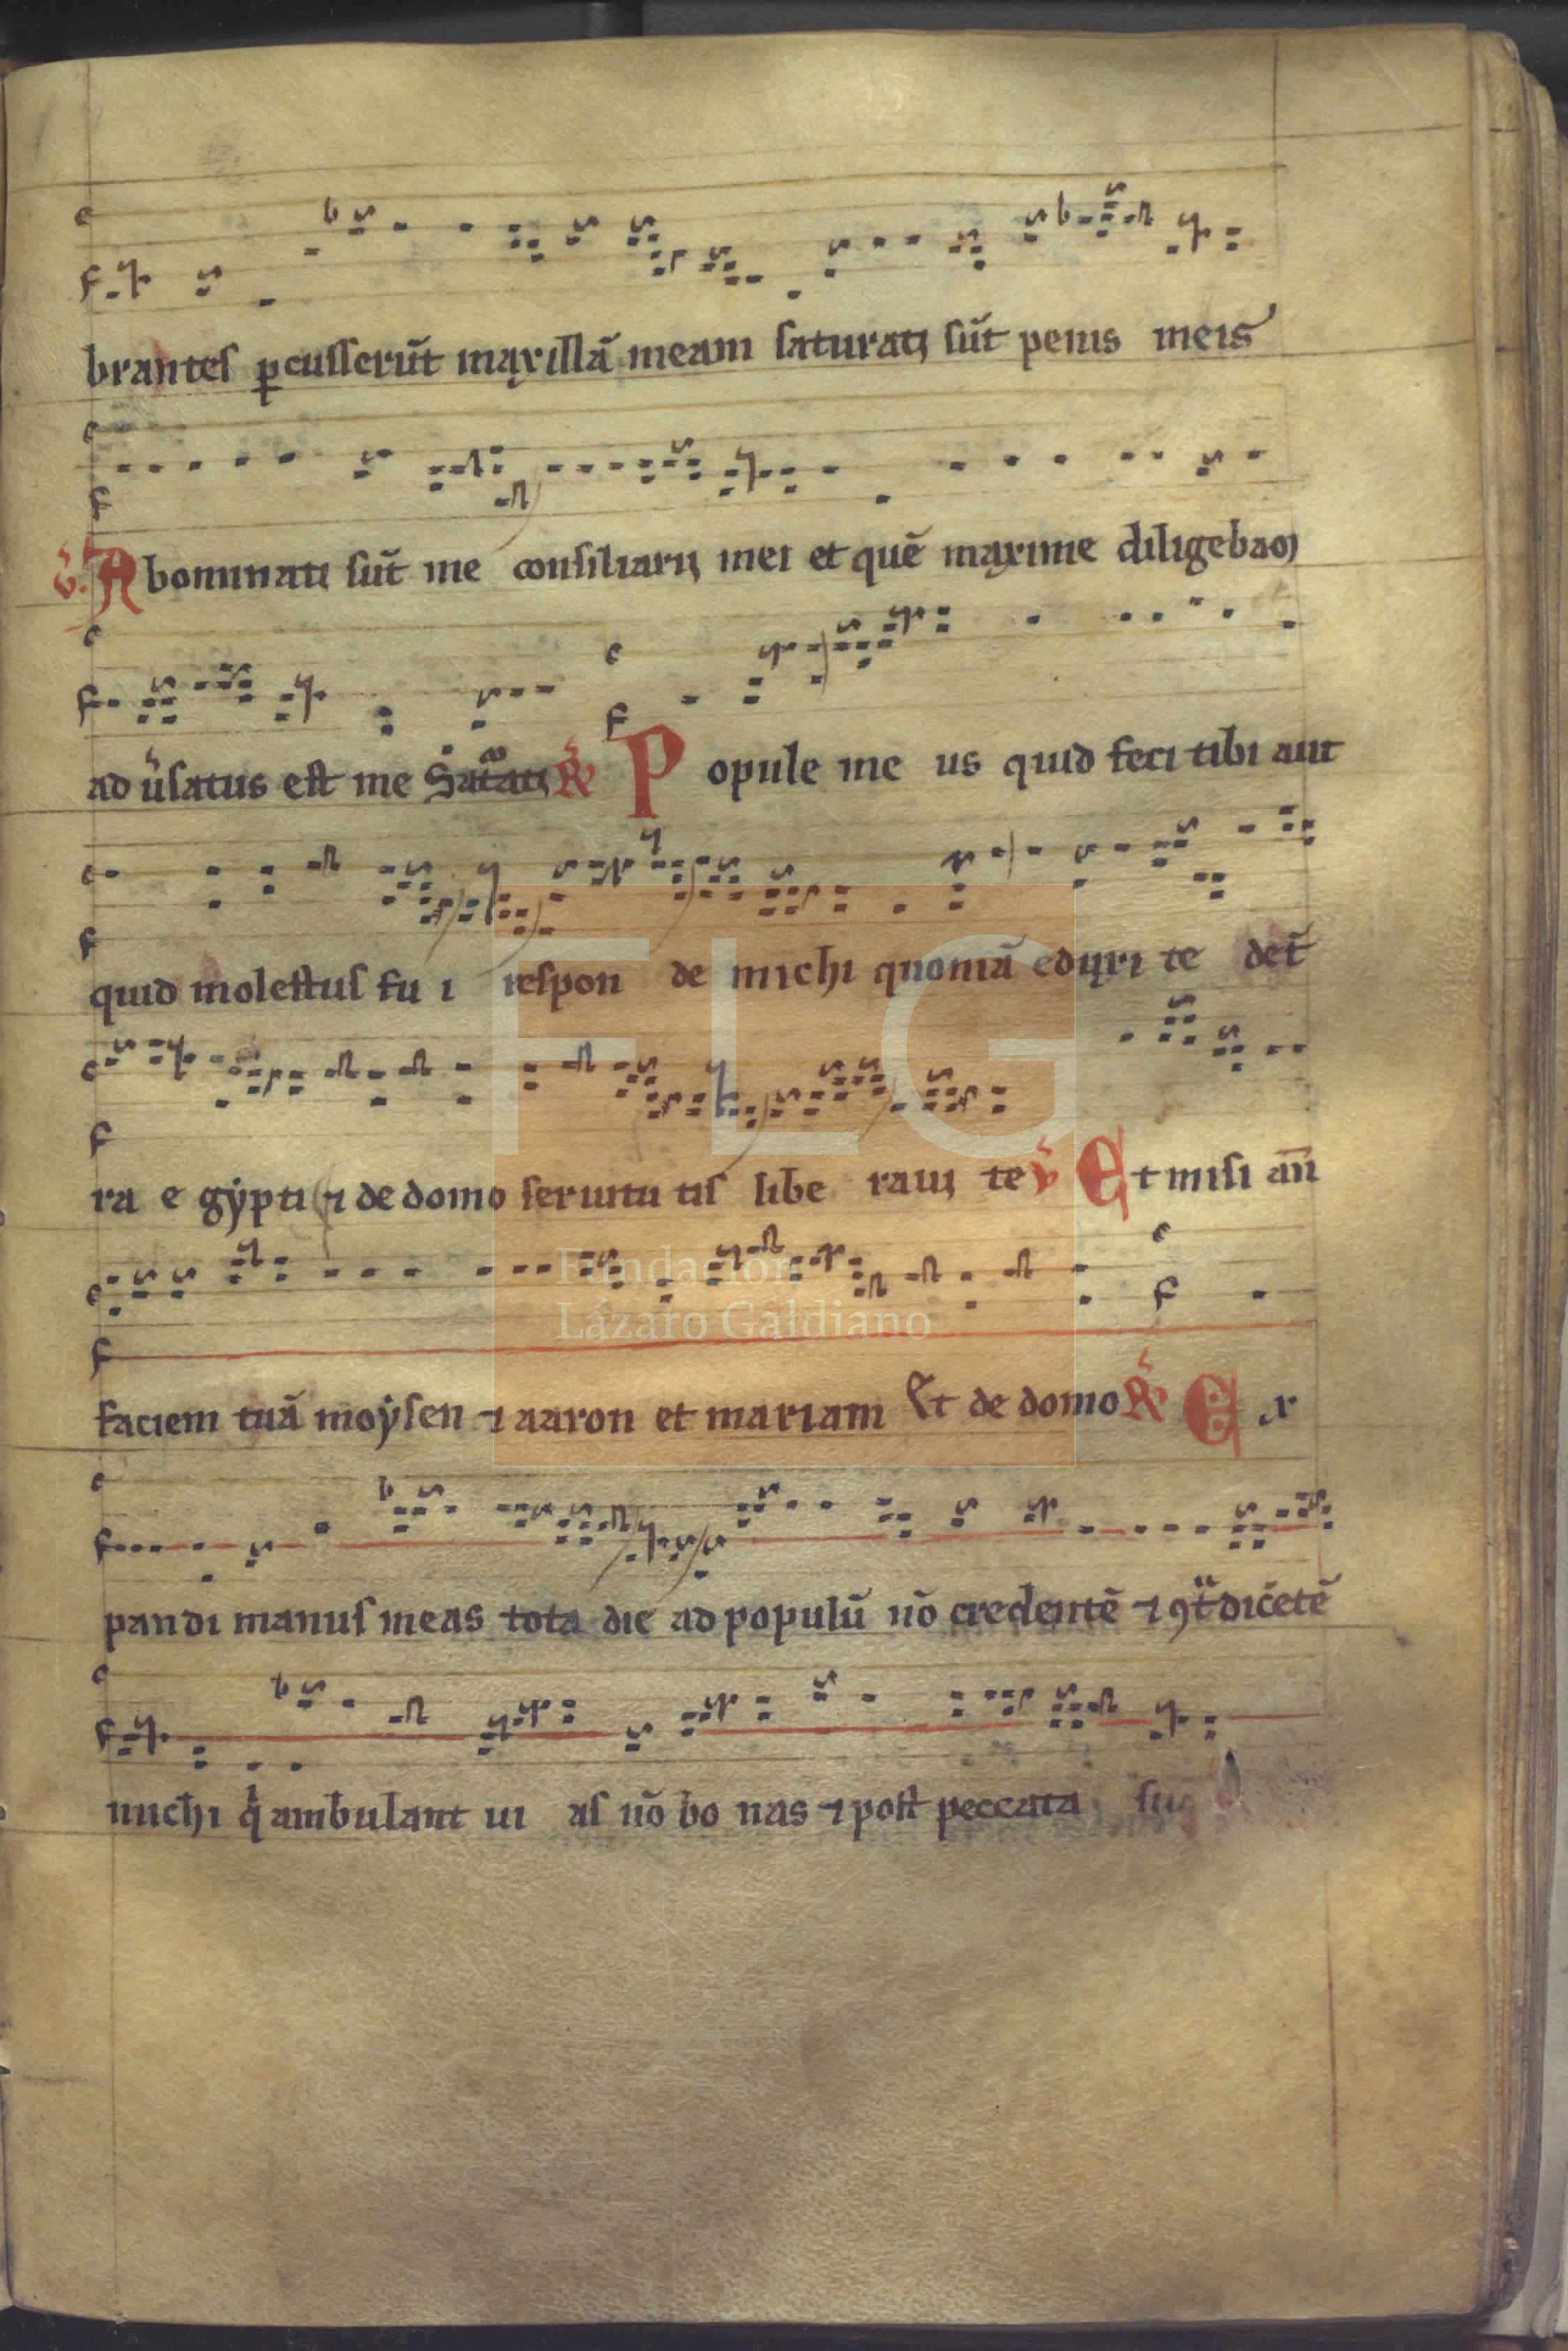 brantes ꝑcusserūt maxillā meam saturati sūt penis meis
v̄. Abominati sūt me consiliarii mei et quē maxime diligebam
ad ũsatus est me Saturati R̃ Popule me us quid feci tibi aut
quid molestus fu i respon de michi quoniā eduxi te det̃
ra e gẏpti ⁊ de domo seruitu tis libe raui te v̄ Et misi an̄
Fundación
Lázaro Galdiano
FLG
faciem tuā moẏsen ⁊ aaron et mariam Et de domo R̃ E x
pandi manus meas tota die ad populū nō credentē ⁊ ꝯtᵃdicētē
michi qͥ ambulant ui as nō bo nas ⁊ post peccata sua